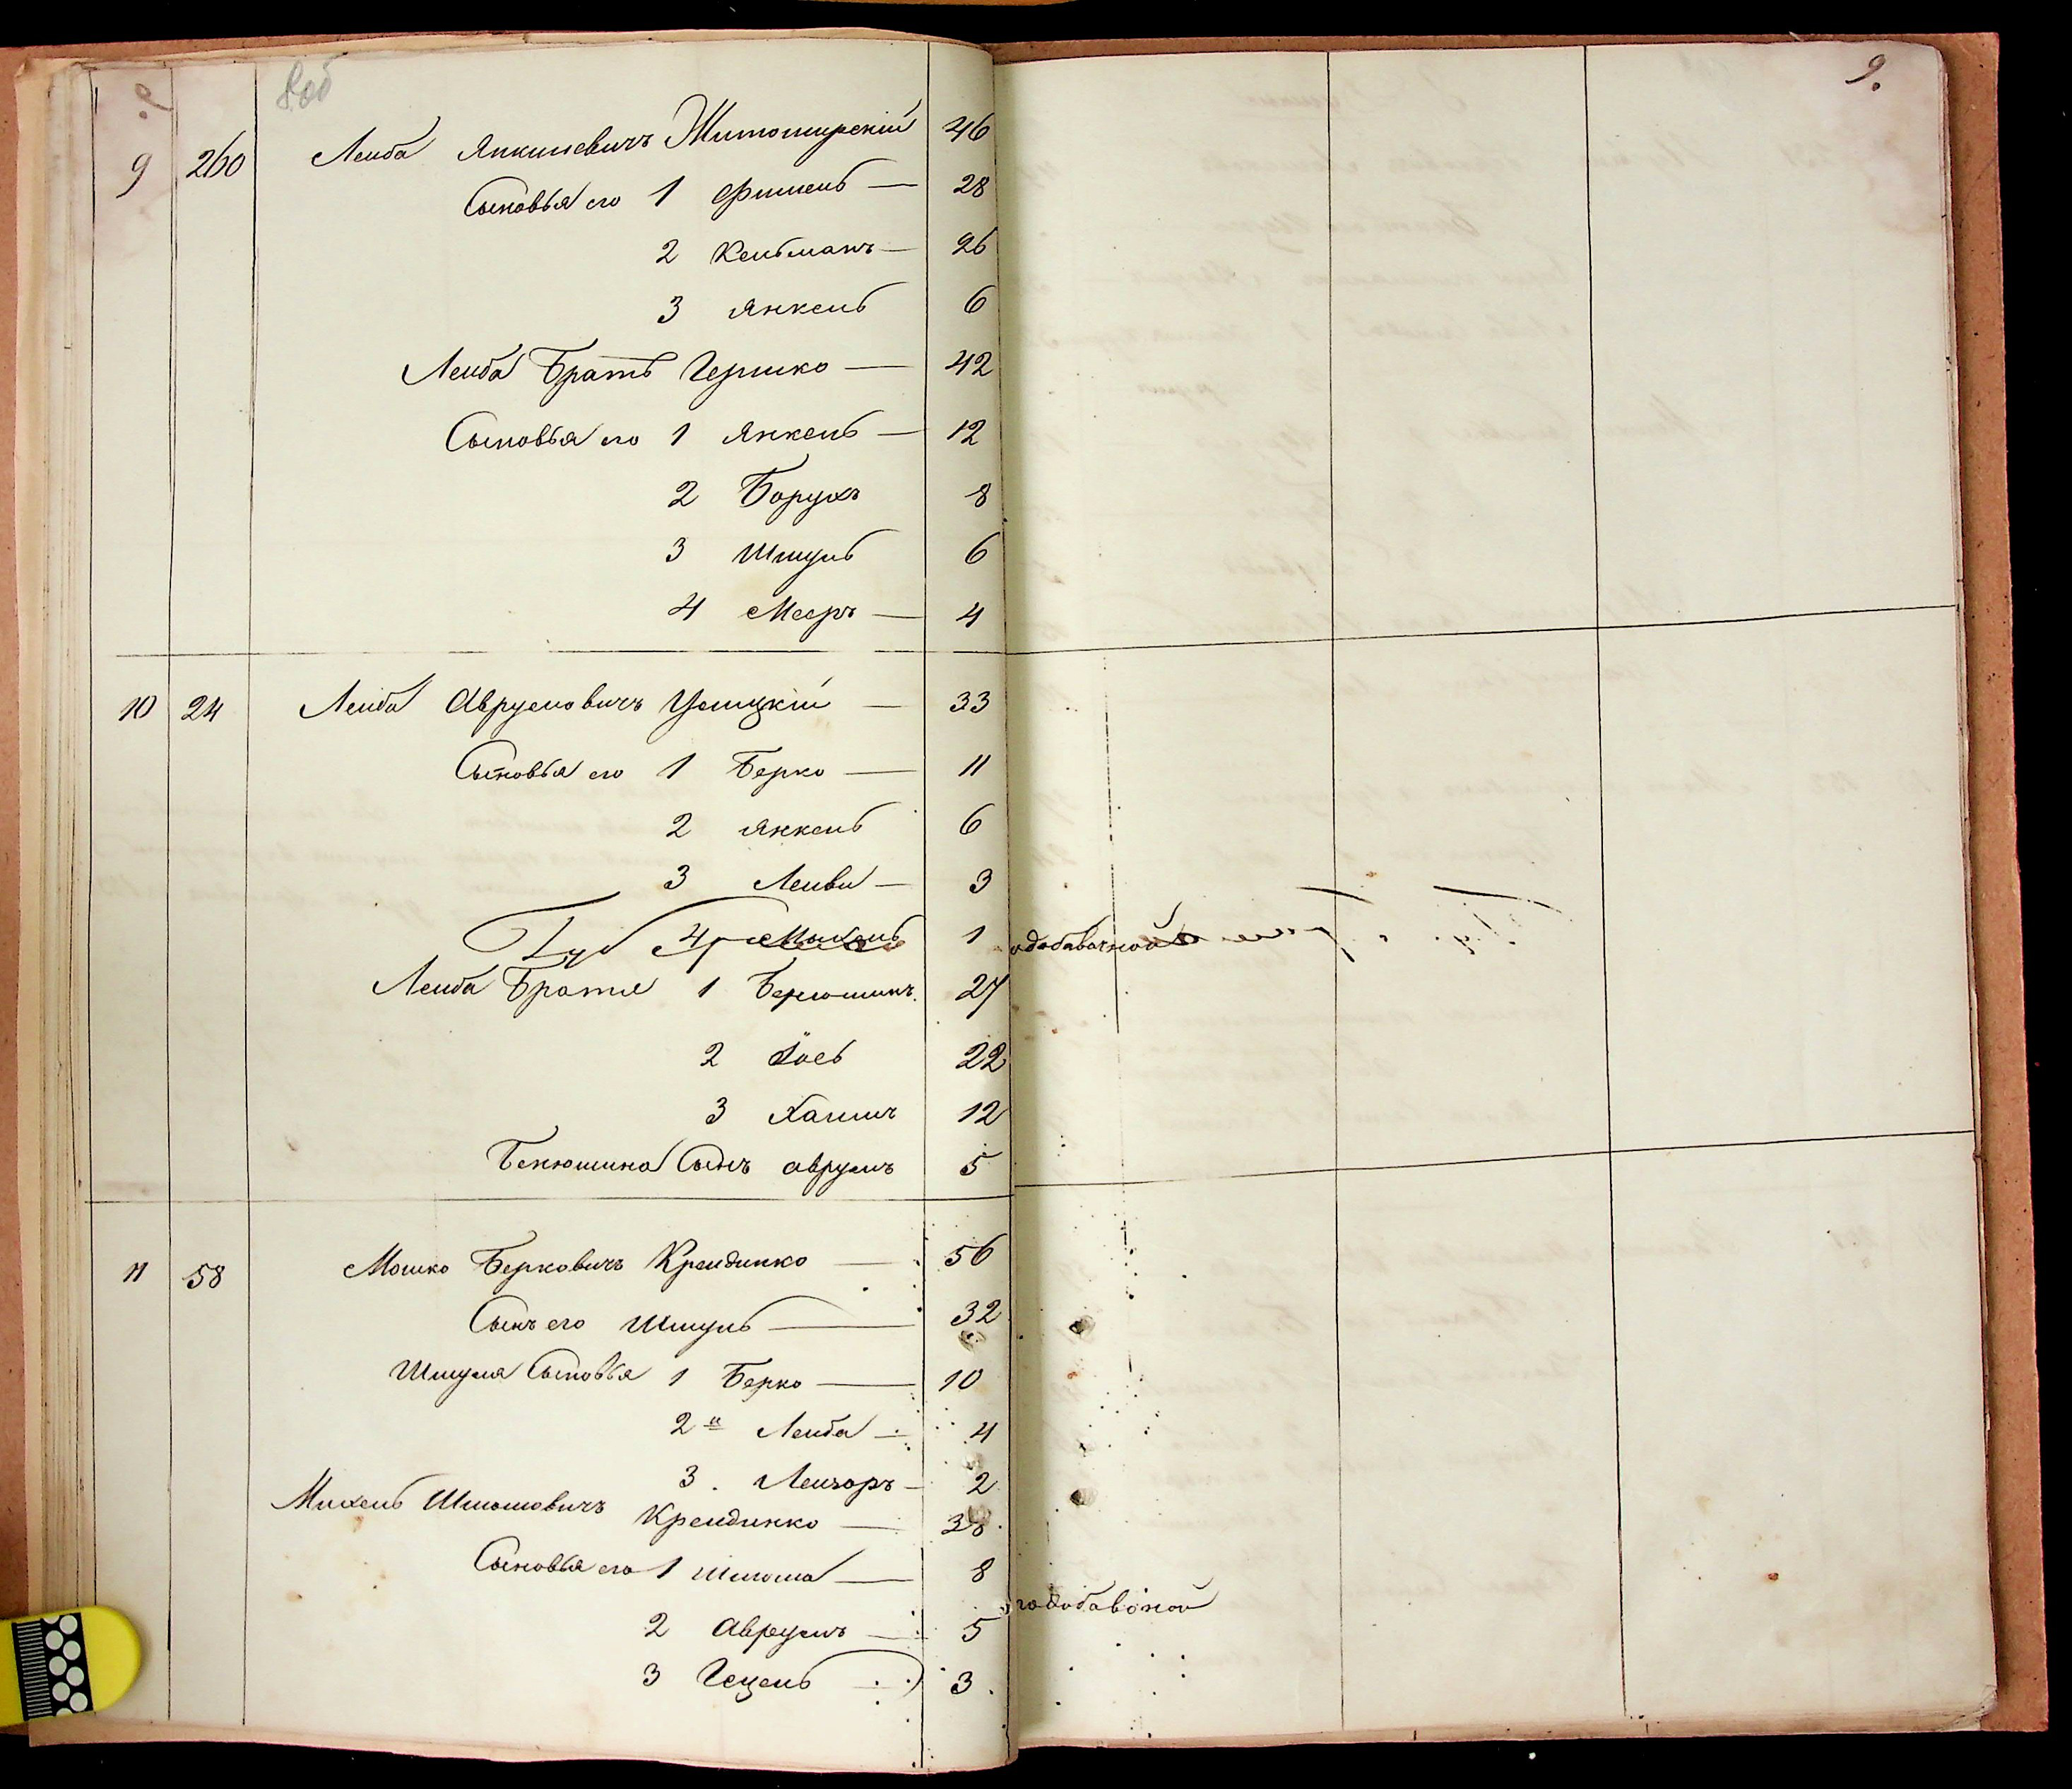 8 об
9.
9 260 Лейба Янкилевичъ Житомирскій 46
Сыновья его 1 Фишель — 28
2 Кельманъ — 26
3 Янкель 6
Лейба Братъ Гершко — 42
Сыновья его 1 Янкель — 12
2 Борухъ 8
3 Шмуль 6
4 Мееръ — 4
10 24 Лейба Аврумовичъ — 33
Сыновья его 1 Берко — 11
2 Янкель 6
3 Лейви — 3
4 Михель 1 одобавочной
Лейба Братья 1 27
2 Іось 22
3 Хаимъ 12
Сынъ Аврумъ 5
11 58 Мошко Берковичъ Крейдинко — 56
Сынъ его Шмуль — 32
Шмуля Сыновья 1 Берко — 10
2й Лейба — 4
3. Лейзоръ — 2
Михель Шліомовичъ
Крейдинко — 38.
Сыновья его 1 Шліома — 8
2 Аврумъ — 5
3 Гецель 3.